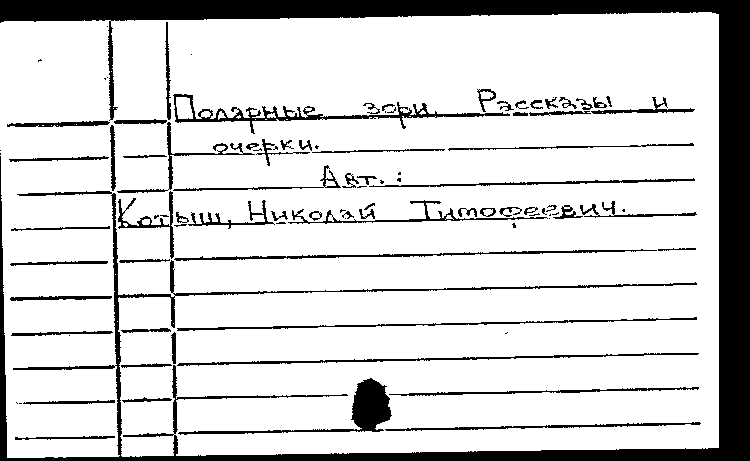 Полярные зори. Рассказы и
очерки.
Авт.:
Котыш, Николай Тимофеевич.